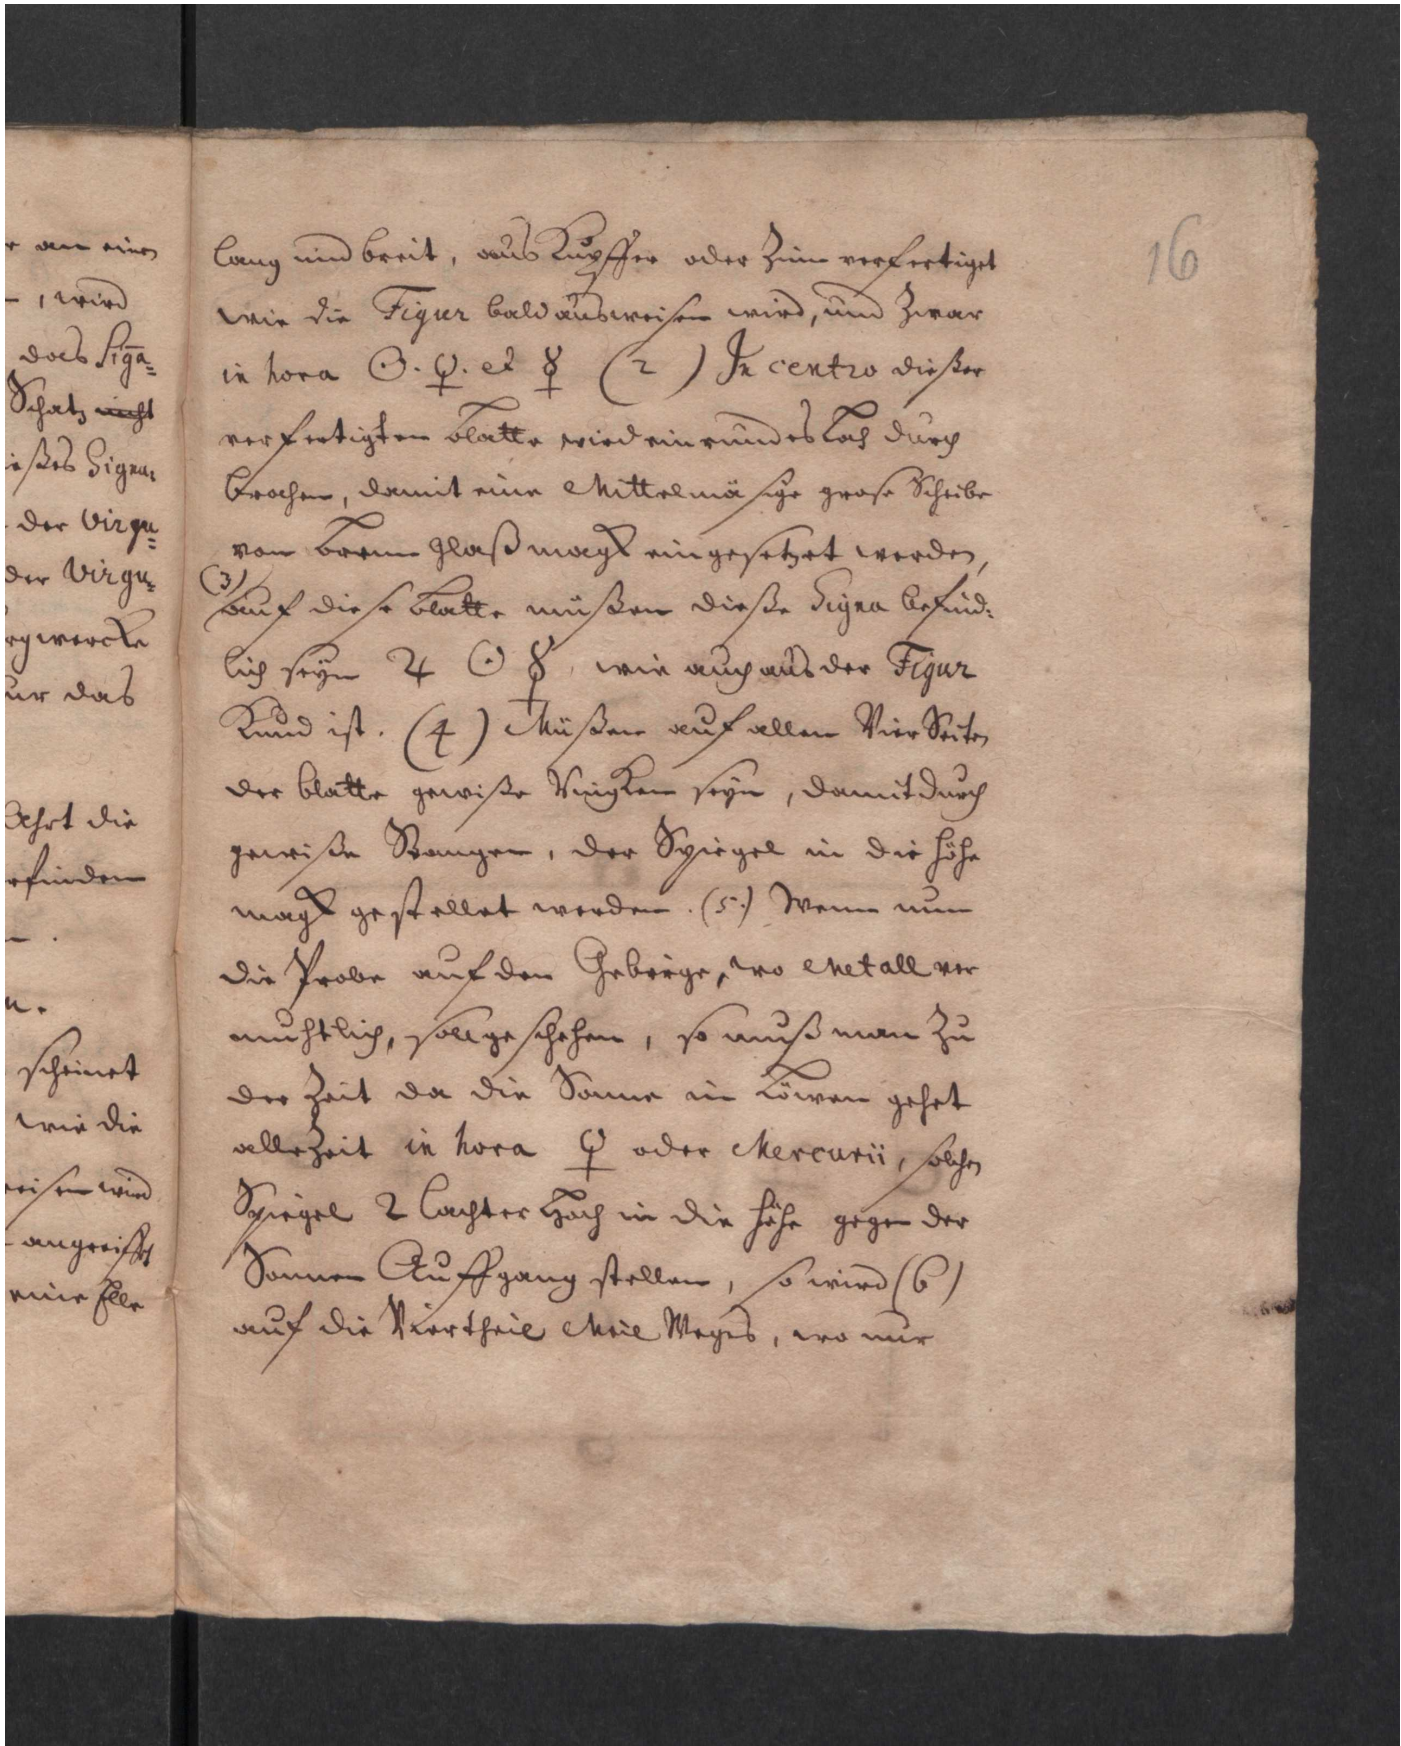 r an einen
, wird
das Siga=
Schatz nicht
ießes Signa:
der Virgu=
der Virgu=
rgwercke
ur das
ahrt die
rfinden
n.
scheinet
wie die
eisen wird
angreifft
eine Elle
16
lang und breit, aus Kupffer oder Zinn verfertiget
wie die Figur bald ausweisen wird, und Zwar
in hora ☉. ♀. et ☿ (2) In centro dießer
verfertigten blatte wird ein rundes Loch durch
brochen, damit eine Mittelmäsige grose Scheibe
von brenn Glaß mag eingesetzet werden,
(3) auf diese blatte müßen dieße Signa befind:
lich seyn ♃ ☉ ☿, wie auch aus der Figur
Kund ist. (4) Müßen auf allen Vier Seiten
der blatte gewiße Ringken seyn, damit durch
gewiße Stangen, der Spiegel in die Höhe
mag gestellet werden. (5.) Wenn nun
die Probe auf den Gebirge, wo Metall ver
muhtlich, soll geschehen, so muß man Zu
der Zeit da die Sonne in Löwen gehet
alleZeit in hora ♀ oder Mercurii, solchen
Spiegel 2 Lachter Hoch in die Höhe gegen der
Sonnen Auffgang stellen, so wird (6)
auf die Viertheil Meil Weges, wo nur